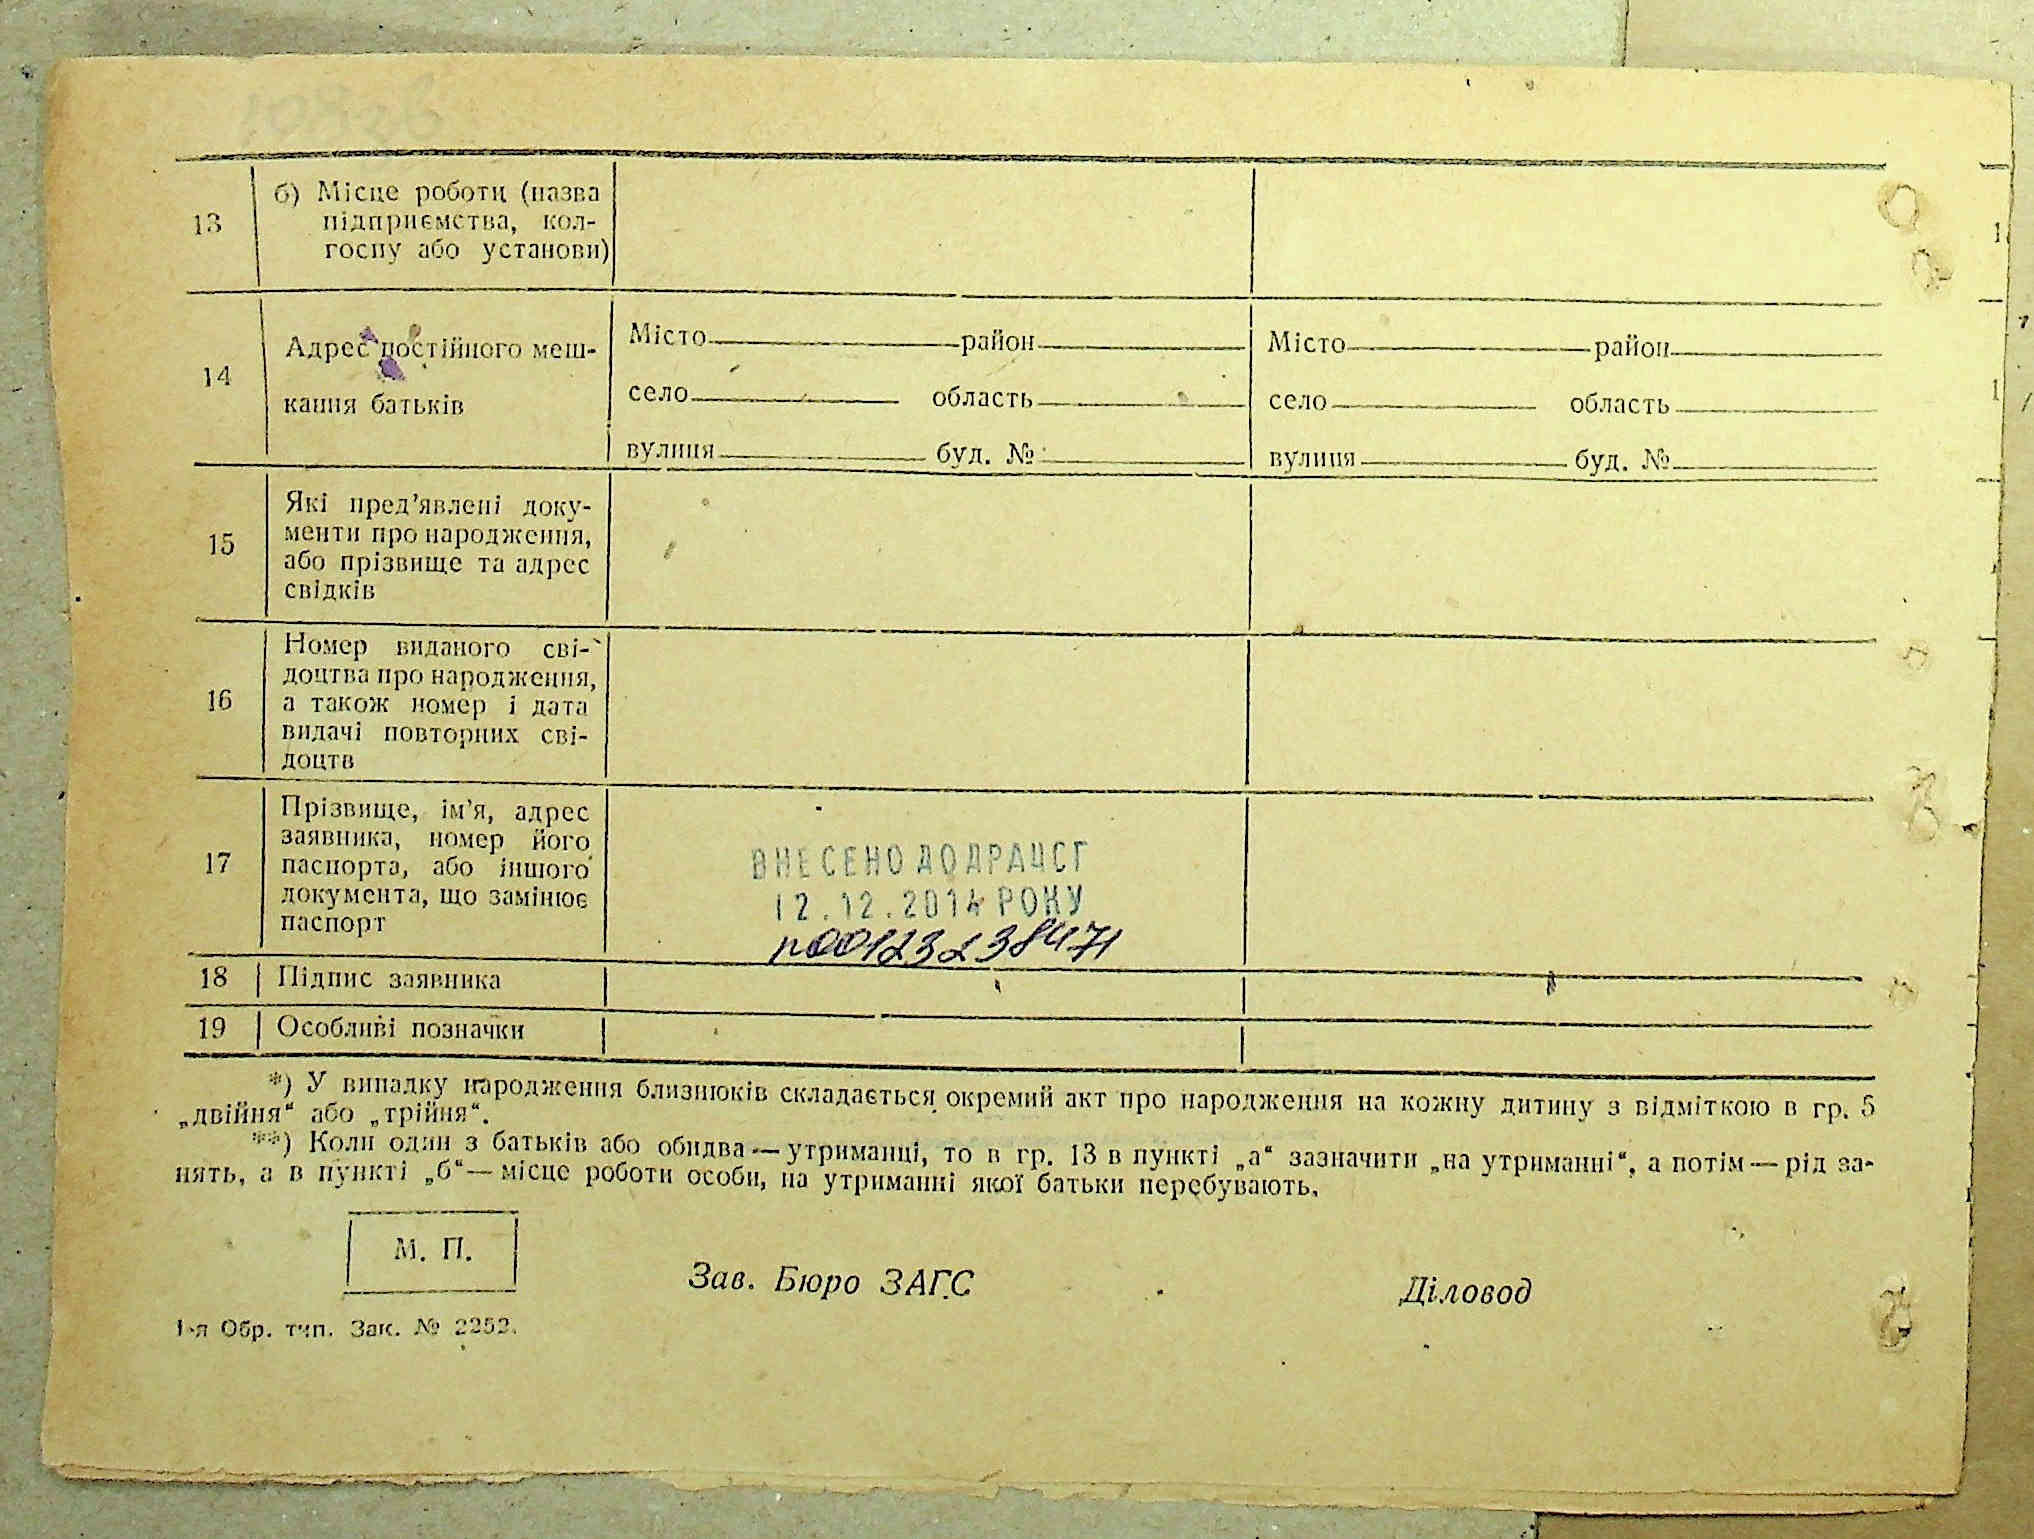 13
б) Місце роботи (назва
підприємства, кол-
госпу або установи)
14
Адрес постійного меш-
кання батьків
Місто район
село область
вулиця буд. №
Місто район
село область
вулиця буд. №
15
Які пред’явлені доку-
менти про народження,
або прізвище та адрес
свідків
16
Номер виданого сві-
доцтва про народження,
а також номер і дата
видачі повторних сві-
доцтв
17
Прізвище, ім’я, адрес
заявника, номер його
паспорта, або іншого
документа, що замінює
паспорт
ВНЕСЕНО ДО ДРАЦСГ
12.12.2014 РОКУ
n00123238471
18 Підпис заявника
19 Особливі позначки
*) У випадку народження близнюків складається окремий акт про народження на кожну дитину з відміткою в гр. 5
„двійня“ або „трійня“.
**) Коли один з батьків або обидва — утриманці, то в гр. 13 в пункті „а“ зазначити „на утриманні“, а потім — рід за-
нять, а в пункті „б“ — місце роботи особи, на утриманні якої батьки перебувають.
М. П.
Зав. Бюро ЗАГС
Діловод
1-я Обр. тип. Зак. № 2252.